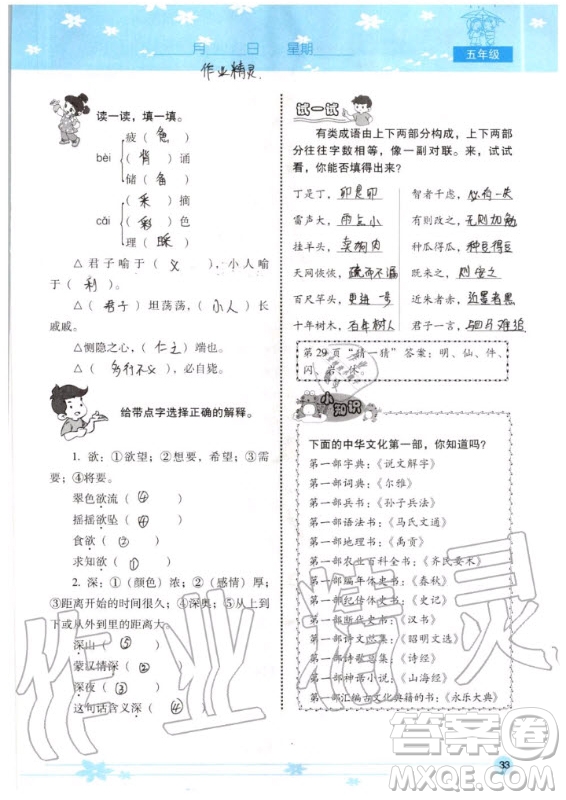 月 日 星期
五年级
作业精灵
读一读，填一填。
bèi
疲（惫）
（背）诵
储（备）
cǎi
（采）摘
（彩）色
理（睬）
△君子喻于（义），小人喻
于（利）。
△（君子）坦荡荡，（小人）长
戚戚。
△恻隐之心，（仁之）端也。
△（多行不义），必自毙。
给带点字选择正确的解释。
1. 欲：①欲望；②想要，希望；③需
要；④将要。
翠色欲流（④）
摇摇欲坠（④）
食欲（①）
求知欲（①）
2. 深：①（颜色）浓；②（感情）厚；
③距离开始的时间很久；④深奥；⑤从上到
下或从外到里的距离大。
深山（⑤）
蒙汉情深（②）
深夜（③）
这句话含义深（④）
试一试
有类成语由上下两部分构成，上下两部
分往往字数相等，像一副对联。来，试试
看，你能否填得出来？
丁是丁，卯是卯 智者千虑，必有一失
雷声大，雨点小 有则改之，无则加勉
挂羊头，卖狗肉 种瓜得瓜，种豆得豆
天网恢恢，疏而不漏 既来之，则安之
百尺竿头，更进一步 近朱者赤，近墨者黑
十年树木，百年树人 君子一言，驷马难追
第29页“猜一猜”答案：明、仙、伴、
闪、 休。
小知识
下面的中华文化第一部，你知道吗？
第一部字典：《说文解字》
第一部词典：《尔雅》
第一部兵书：《孙子兵法》
第一部语法书：《马氏文通》
第一部地理书：《禹贡》
第一部农业百科全书：《齐民要术》
第一部编年体史书：《春秋》
第一部纪传体史书：《史记》
第一部断代史书：《汉书》
第一部诗文总集：《昭明文选》
第一部诗歌总集：《诗经》
第一部神话小说：《山海经》
第一部汇编古文化典籍的书：《永乐大典》
作业精灵
答案圈
MXQE.COM
33